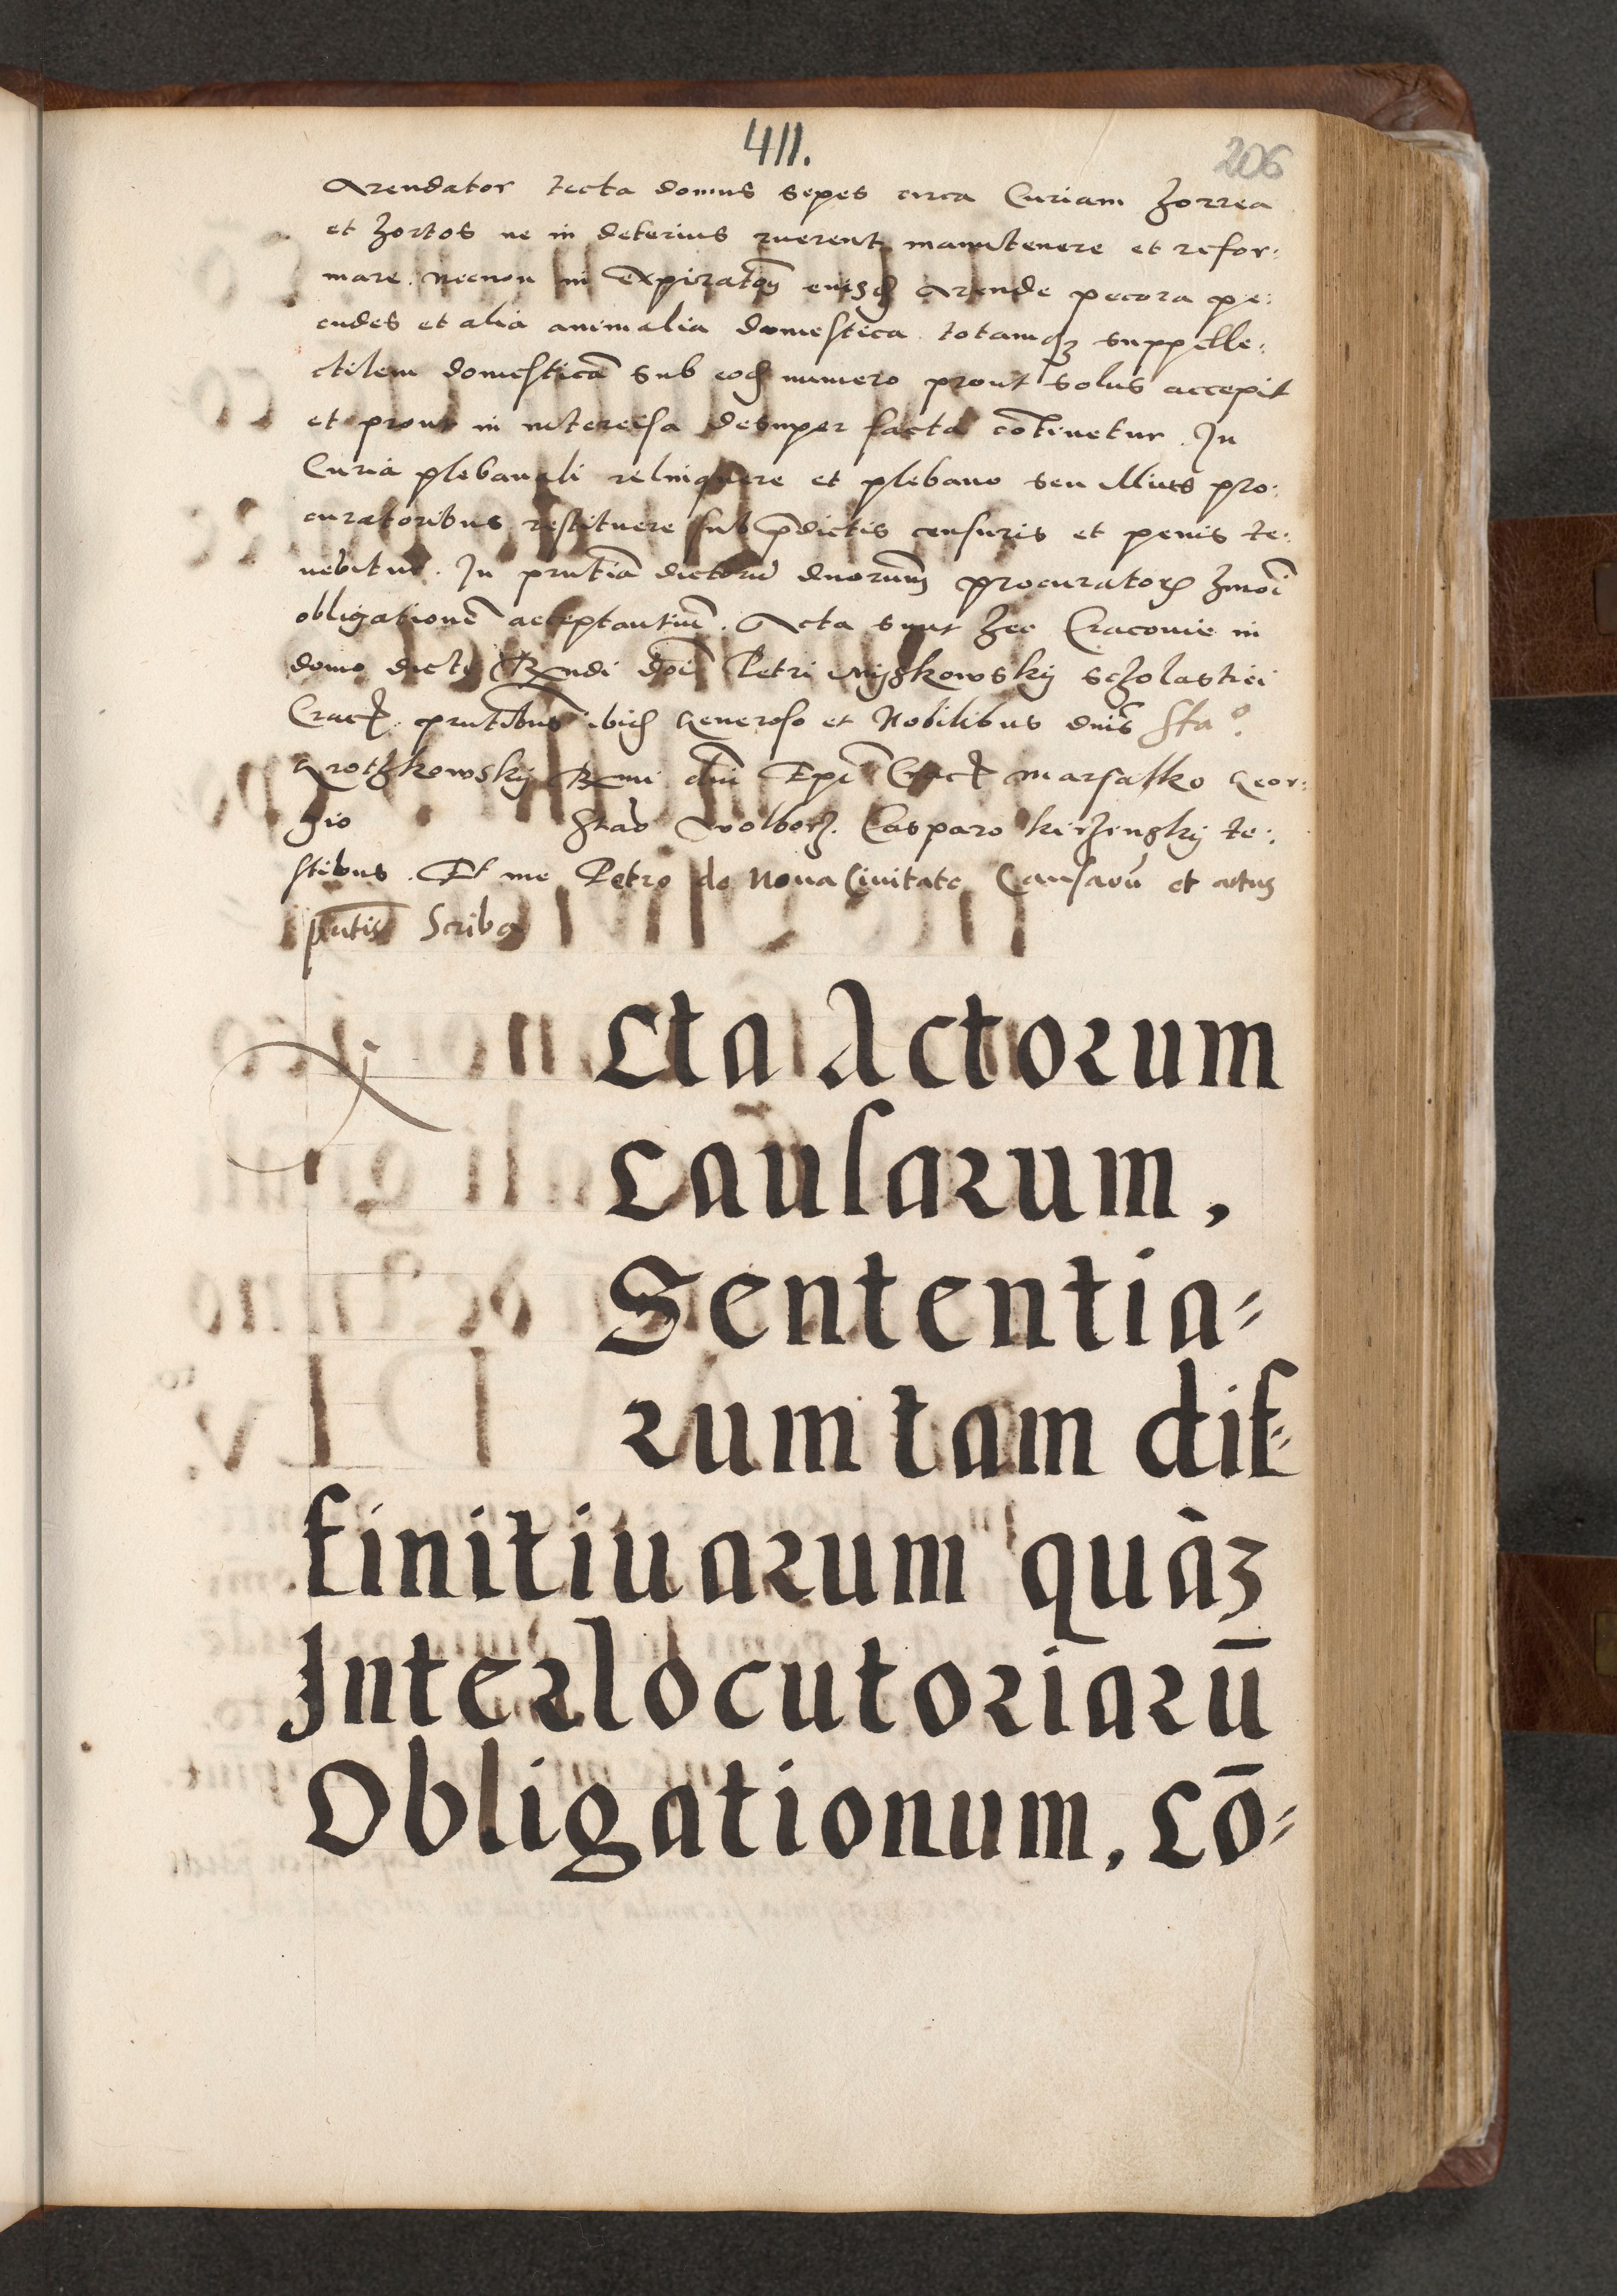 411.
206
Arendator tecta domus sepes circa Curiam horrea
et hortos ne in deterius ruerent manutenere et refor:
mare. necnon in expiratōm eiusd Arende pecora pe:
cudes et alia animalia domestica totamqʒ suppelle:
ctilem domesticā sub eod numero prout solus accepit
et prout in desuper facta cōtinetur. In
Curia plebanali relinquere et plebano seu illius pro:
curatoribus restituere sub p̄dictis censuris et penis te:
nebitur. In pn̄tia dictorū duorum procuratorꝝ hm̄oi
obligationē acceptantium. Acta sunt hec Cracouie in
domo dicti Rn̄di dn̄i Petri Myszkowskij scholastici
Crac. pn̄tibus ibid Generoso et Nobilibus dn̄is Sta°
Rmi dn̄i Epi Crac marsalko Geor:
gio Casparo te:
stibus. Et me Petro de Noua Ciuitate Causarū et actus
pn̄tis Scriba
cta Actorum
causarum,
Sententia⸗
rum tam dif⸗
finitiuarum quàʒ
Interlocutoriarū
Obligationum, cō⸗